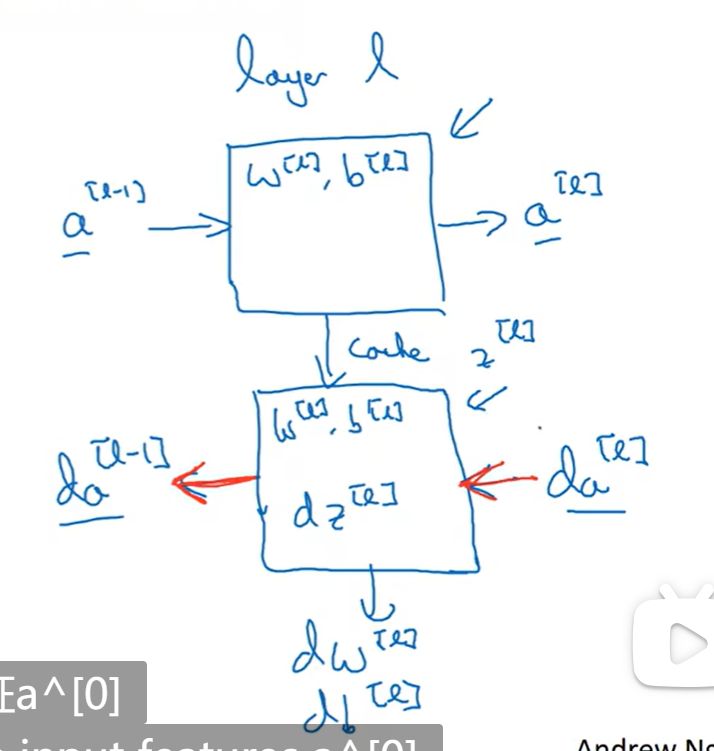 layer l
a^[l-1]
w^[l], b^[l]
a^[l]
cache z^[l]
w^[l], b^[l]
da^[l-1]
dz^[l]
da^[l]
dw^[l]
db^[l]
a^[0]
input features a^[0]
Andrew